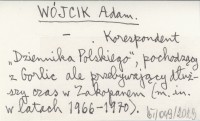 WÓJCIK Adam.
– . Korespondent
„Dziennika Polskiego”, pochodzący
z Gorlic ale przebywający dłuż-
szy czas w Zakopanem (m.in.
w latach 1966–1970).